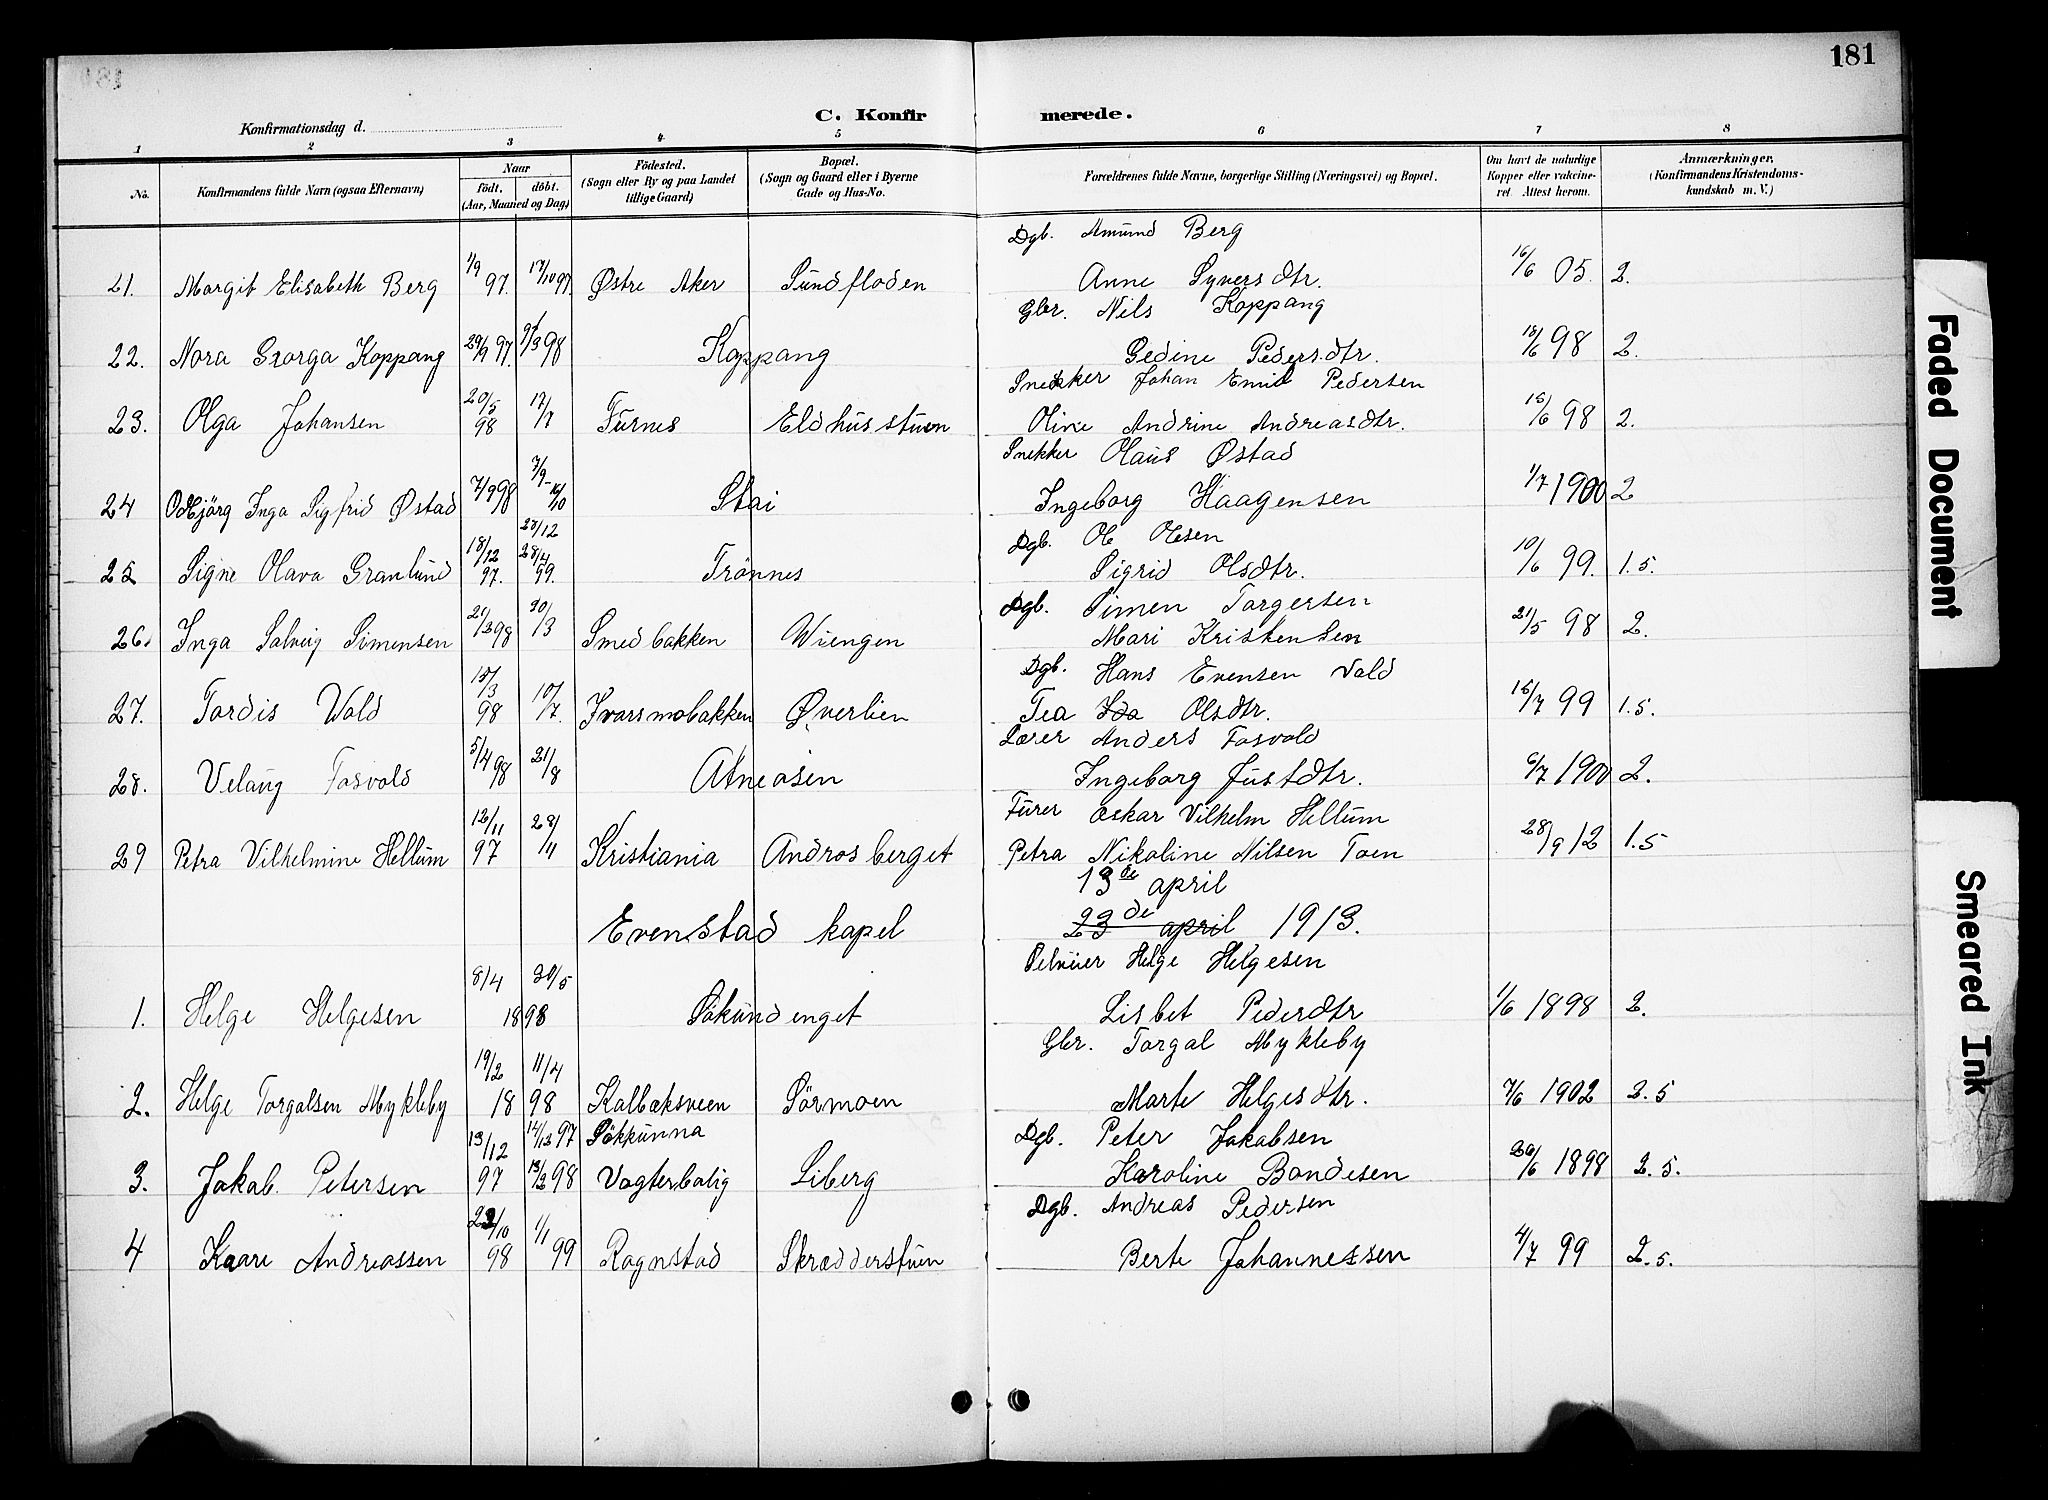 181
C. Konfirmerede.
Konfirmationsdag d.
1 2 3 4 5 6 7 8
No.
Konfirmandens fulde Navn (ogsaa Efternavn)
Naar
födt. döbt.
(Aar, Maaned og Dag)
Födested.
(Sogn eller By og paa Landet
tillige Gaard)
Bopæl.
(Sogn og Gaard eller i Byerne
Gade og Hus-No.
Forældrenes fulde Navne, borgerlige Stilling (Næringsvei) og Bopæl.
Om havt de naturlige
Kopper eller vakcine-
ret. Attest herom.
Anmærkninger.
(Konfirmandens Kristendoms-
kundskab m. V.)
Dgb. Amund Berg
21. Margit Elisabeth Berg 1/9 97. 17/10 97 Østre Aker Sundfloden Anne Syversdtr. 16/6 05. 2.
Gbr. Nils Koppang
22. Nora Georga Koppang 29/9 97. 98 Koppang Gedine Pedersdtr. 18/6 98 2.
Snekker Johan Emil Pedersen
23. Olga Johansen 20/5 98 17/7 Furnes Eldhusstuen Oline Andrine Andreasdtr. 18/6 98 2.
Snekker Olaus Østad
24 Odbjörg Inga Sigfrid Østad 7/9 98 7/9 Stai Ingeborg Haagensen 1/7 1900 2
Dgb. Ole Olesen
25 Signe Olava Granlund 18/12 97. 28/12 28/4 99. Trönnes Sigrid Olsdtr. 10/6 99. 1.5.
Dgb. Simen Torgersen
26. Inga Solveig Simensen 21/3 98 30/3 Smedbakken Wiengen Mari Kristensen 21/5 98 2.
Dgb. Hans Evensen Vold
27. Tordis Vold 15/3 98 10/7. Ivarsmobakken Øverlien Tea Ida Olsdtr. 18/7 99 1.5.
Lærer Anders Fosvold
28. Velaug Fosvold 5/4 98 21/8 Atneosen Ingeborg Justdtr. 6/7 1900 2.
Furer Oskar Vilhelm Hellum
29 Petra Vilhelmine Hellum 12/11 97 28/4 Kristiania Androsberget Petra Nikoline Nilsen Toen 28/9 12 1.5
13de april
Evenstad kapel 23de april 1913.
Selveier Helge Helgesen
1. Helge Helgesen 8/4 30/5 1898 Sökundenget Lisbet Pedersdtr 1/6 1898 2.
Gbr. Torgal Mykleby
2. Helge Torgalsen Mykleby 19/2 11/4 1898 Kalbæksveen Sörmoen Marte Helgesdtr. 7/6 1902 2.5
Dgb. Peter Jakobsen
3. Jakob Petersen 13/12 97 14/12 97 13/2 98 Sökkunna Vogterbolig Liberg Karoline Bondesen 26/6 1898 2.5.
Dgb. Andreas Pedersen
4 Kaare Andreassen 98 1/1 99 Rognstad Skrædderstuen Berte Johannessen 4/7 99 2.5.
Faded Document
Smeared Ink